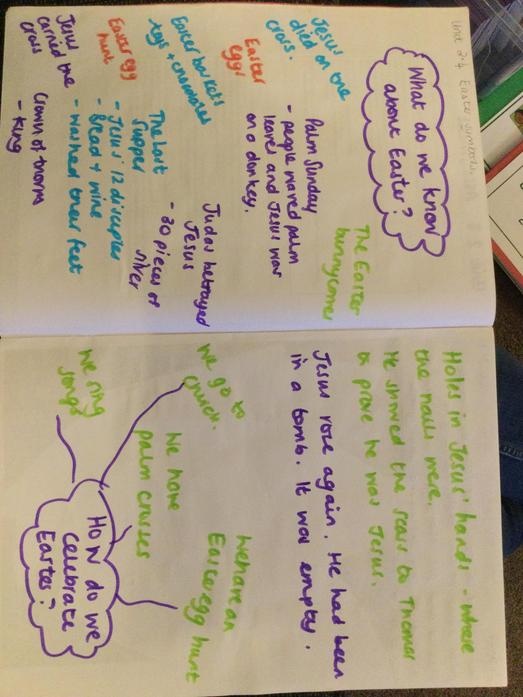 Unit 2.4 Easter
What do we know
about Easter?
The Easter
bunny comes
Jesus
died on the
cross.
Palm Sunday
- people waved palm
leaves and Jesus was
on a donkey.
Easter
eggs
Easter baskets
eggs + chocolates
Judas betrayed
Jesus
- 30 pieces of
silver
Easter egg
hunt
The Last
Supper
- Jesus' 12 disciples
- Bread + wine
- washed their feet
Jesus
carried the
cross
Crown of thorns
- King
Holes in Jesus' hands - where
the nails were.
He showed the scars to Thomas
to prove he was Jesus.
Jesus rose again. He had been
in a tomb. It was empty.
We go to
church.
We have
palm crosses
We have an
Easter egg hunt
We sing
songs
How do we
celebrate
Easter?